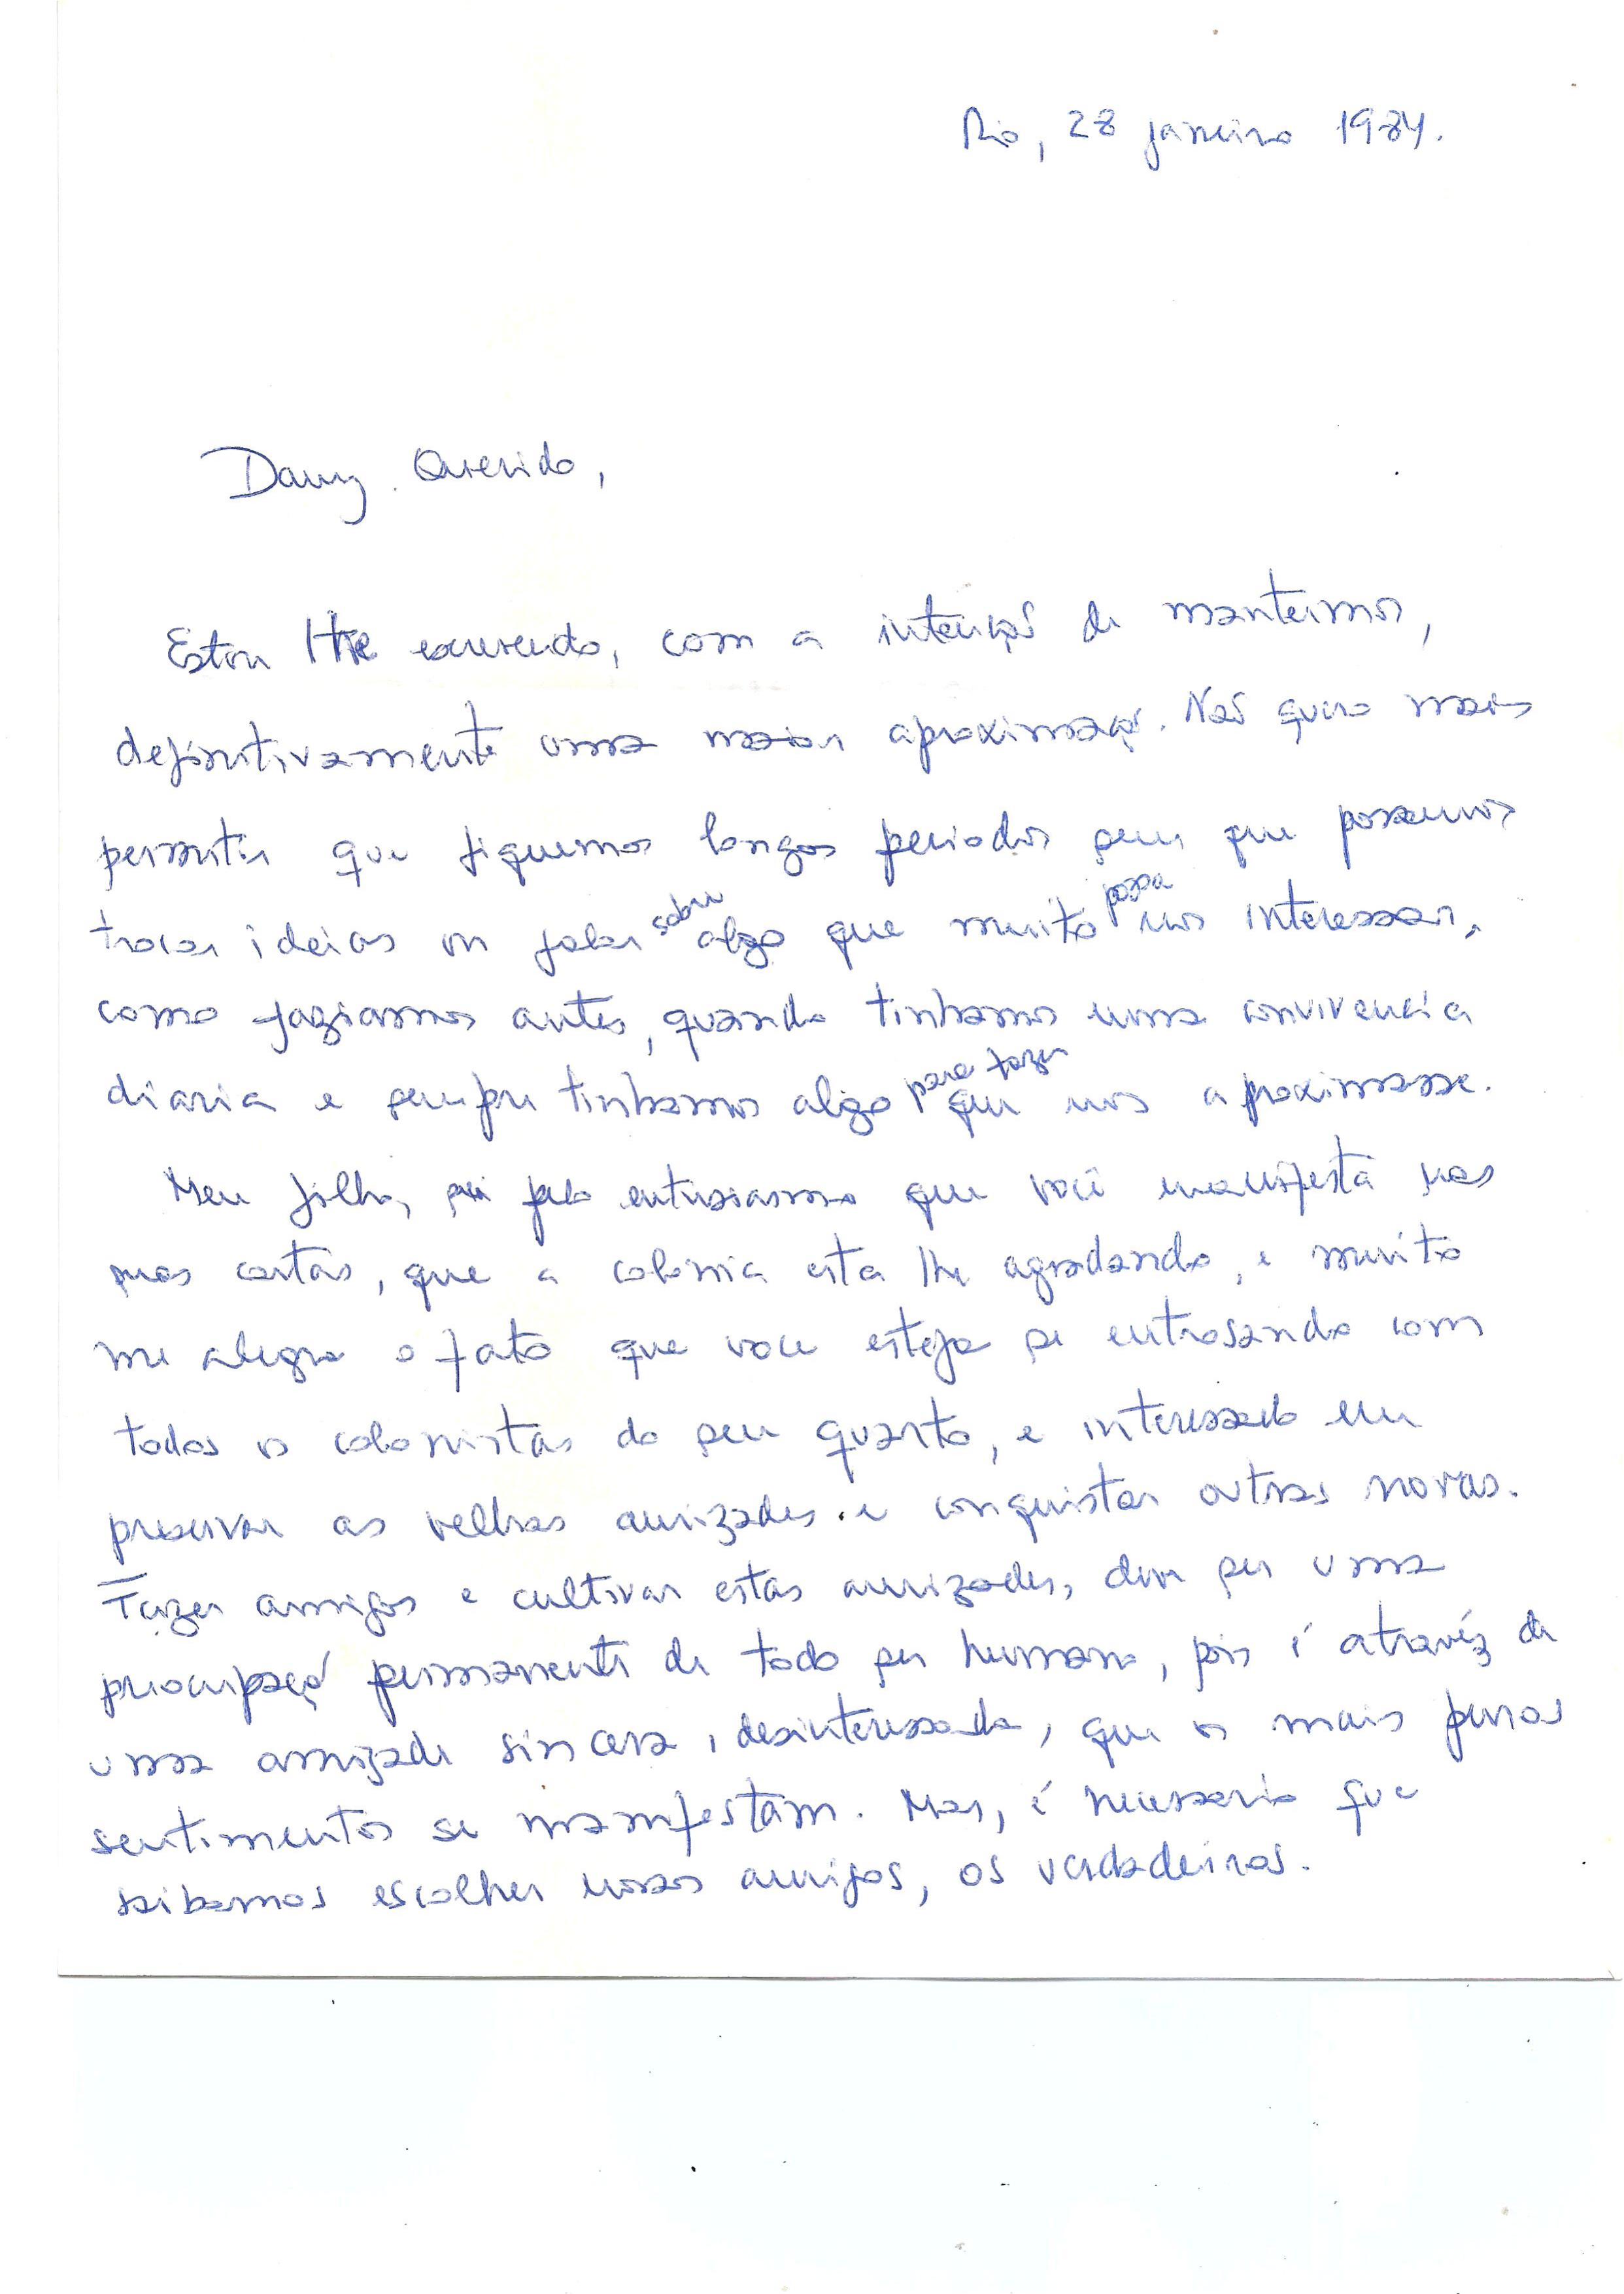 Rio, 28 janeiro 1984.
Dany Querido,
Estou lhe escrevendo, com a intenção de mantermos,
definitivamente uma maior aproximação. Não quero mais
permitir que fiquemos longos periodos sem que possamos
trocar ideias ou falar sobre algo que muito possa nos interessar,
como faziamos antes, quando tinhamos uma convivencia
diaria e sempre tinhamos algo para fazer que nos aproximasse.
Meu filho, sei pelo entusiasmo que você manifesta nas
suas cartas, que a colonia esta lhe agradando, e muito
me alegra o fato que voce esteja se entrosando com
todos os colonistas do seu quarto, e interessado em
preservar as velhas amizades e conquistar outras novas.
Fazer amigos e cultivar estas amizades, deve ser uma
preocupação permanente de todo ser humano, pois é atravéz de
uma amizade sincera, desinteressada, que os mais puros
sentimentos se manifestam. Mas, é necessario que
saibamos escolher nossos amigos, os verdadeiros.